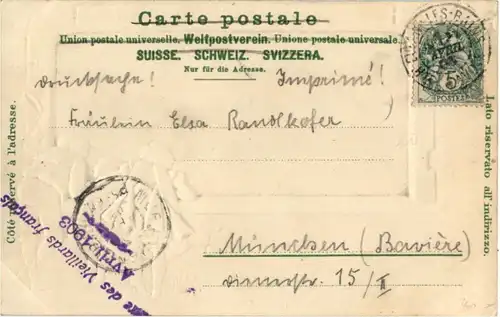 Carte postale
Union postale universelle. Weltpostverein. Unione postale universale.
SUISSE. SCHWEIZ. SVIZZERA.
Nur für die Adresse.
Drucksache! Imprimé!
Fräulein Elsa Randlkofer
München (Bavière)
Dienerstr. 15/II
Côté réservé à l'adresse.
Lato riservato all'indirizzo.
des Vieillards français
AVRIL 1903
5
POSTES